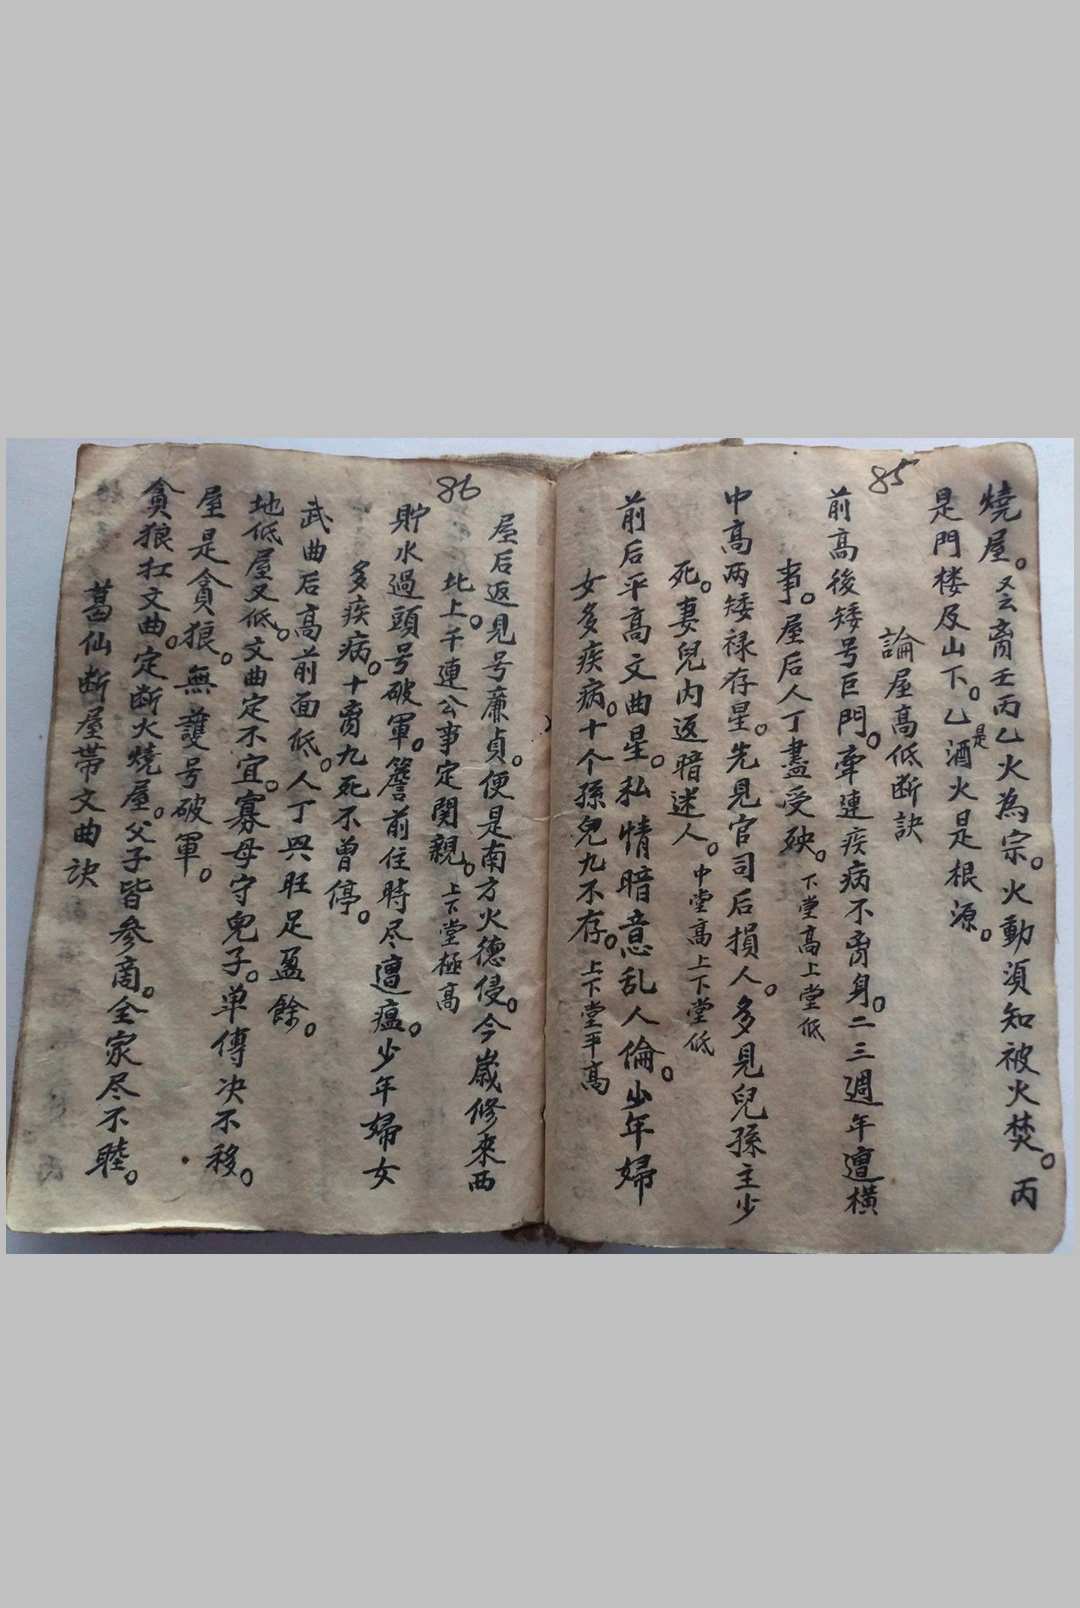 85
燒屋。又云离壬丙乙火為宗。火動須知被火焚。丙
是門楼及山下。乙是酒火是根源。
論屋高低断訣
前高後矮号巨門。牽連疾病不离身。二三週年遭橫
事。屋后人丁盡受殃。下堂高上堂低
中高两矮禄存星。先見官司后損人。多見兒孫主少
死。妻兒内返暗迷人。中堂高上下堂低
前后平高文曲星。私情暗意乱人倫。少年婦
女多疾病。十个孫兒九不存。上下堂平高
86
屋后返見号廉貞。便是南方火德侵。今歲修来西
北上。干連公事定関親。上下堂極高
貯水過頭号破軍。簷前住時尽遭瘟。少年婦女
多疾病。十胥九死不曾停。
武曲后高前面低。人丁興旺足盈餘。
地低屋又低。文曲定不宜。寡母守兒子。单傳决不移。
屋是貪狼。無護号破軍。
貪狼扛文曲。定断火燒屋。父子皆參商。全家尽不睦。
葛仙断屋带文曲诀